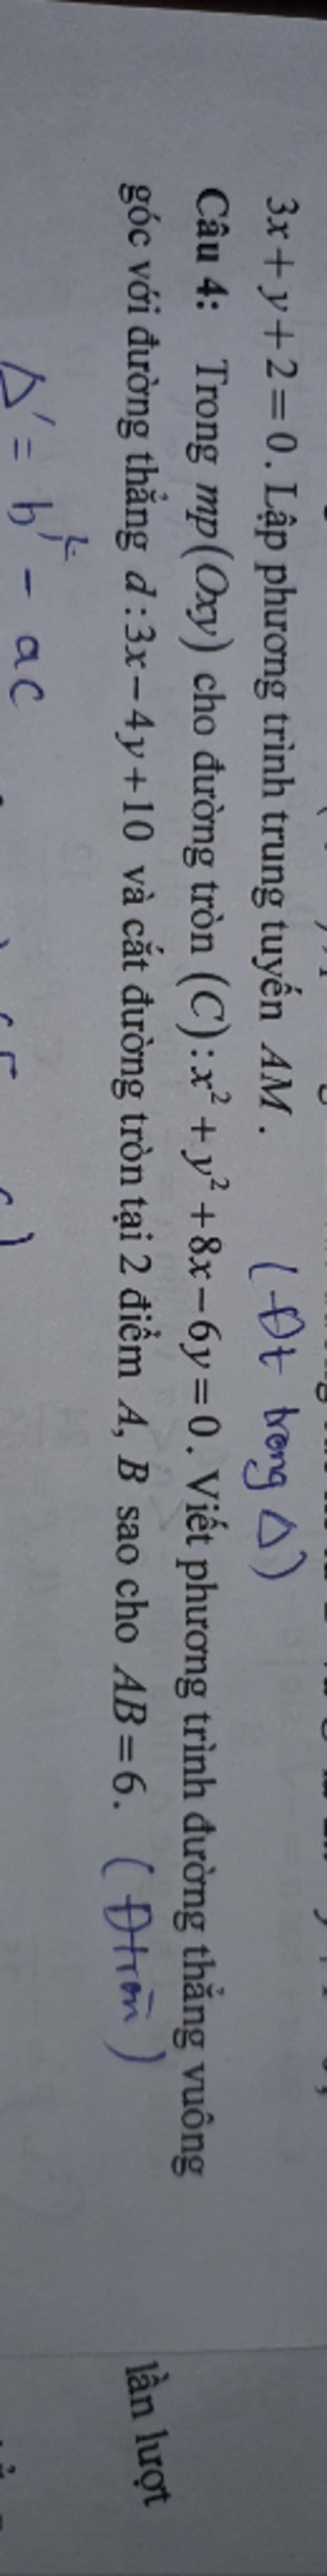 3x + y + 2 = 0. Lập phương trình trung tuyến AM. (Đt trong Δ)
Câu 4: Trong mp(Oxy) cho đường tròn (C): x² + y² + 8x − 6y = 0. Viết phương trình đường thẳng vuông
góc với đường thẳng d : 3x − 4y + 10 và cắt đường tròn tại 2 điểm A, B sao cho AB = 6. (Đtròn)
lần lượt
Δ' = b'² − ac